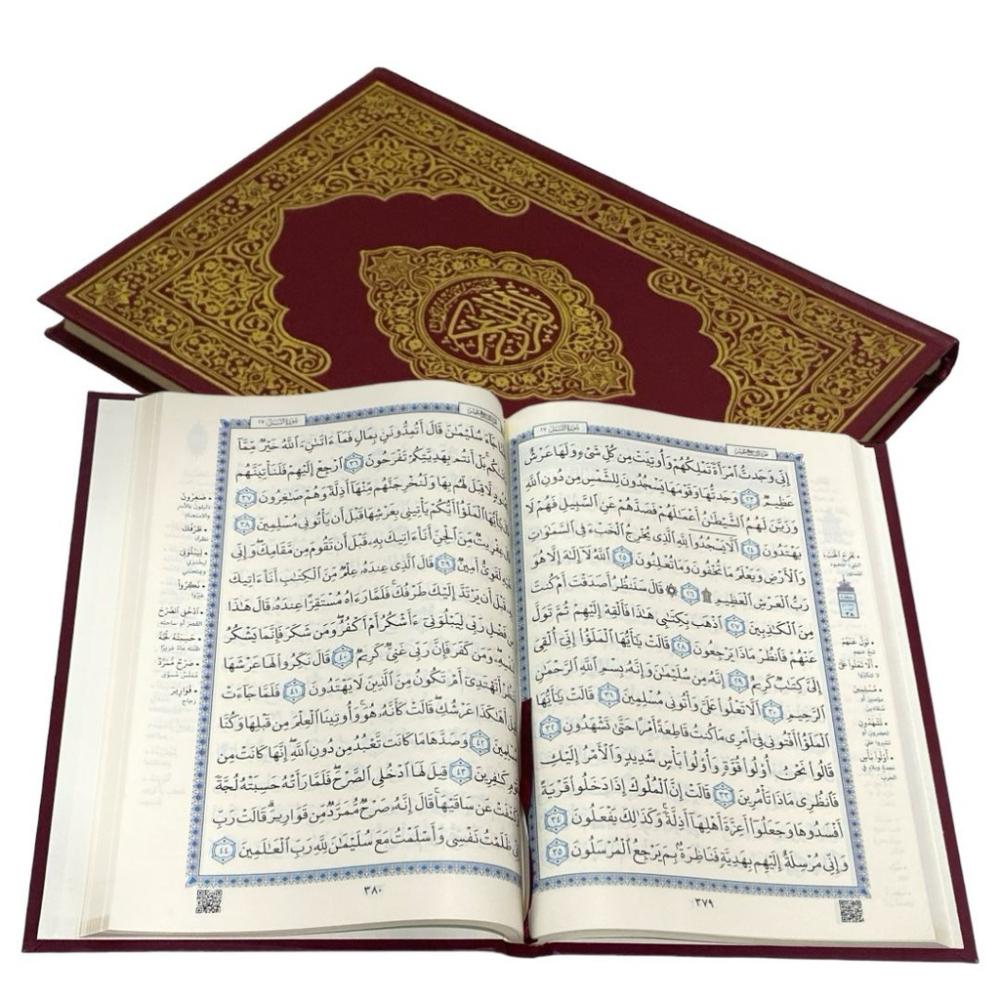 سُورَةُ النَّمْلِ ٢٧
إِنِّي وَجَدتُّ ٱمْرَأَةً تَمْلِكُهُمْ وَأُوتِيَتْ مِن كُلِّ شَىْءٍ وَلَهَا عَرْشٌ
عَظِيمٌ ٢٣ وَجَدتُّهَا وَقَوْمَهَا يَسْجُدُونَ لِلشَّمْسِ مِن دُونِ ٱللَّهِ
وَزَيَّنَ لَهُمُ ٱلشَّيْطَٰنُ أَعْمَٰلَهُمْ فَصَدَّهُمْ عَنِ ٱلسَّبِيلِ فَهُمْ لَا
يَهْتَدُونَ ٢٤ أَلَّا يَسْجُدُوا۟ لِلَّهِ ٱلَّذِى يُخْرِجُ ٱلْخَبْءَ فِى ٱلسَّمَٰوَٰتِ
وَٱلْأَرْضِ وَيَعْلَمُ مَا تُخْفُونَ وَمَا تُعْلِنُونَ ٢٥ ٱللَّهُ لَآ إِلَٰهَ إِلَّا هُوَ
رَبُّ ٱلْعَرْشِ ٱلْعَظِيمِ ۩ ٢٦ ۞ قَالَ سَنَنظُرُ أَصَدَقْتَ أَمْ كُنتَ
مِنَ ٱلْكَٰذِبِينَ ٢٧ ٱذْهَب بِّكِتَٰبِى هَٰذَا فَأَلْقِهْ إِلَيْهِمْ ثُمَّ تَوَلَّ
عَنْهُمْ فَٱنظُرْ مَاذَا يَرْجِعُونَ ٢٨ قَالَتْ يَٰٓأَيُّهَا ٱلْمَلَؤُا۟ إِنِّىٓ أُلْقِىَ
إِلَىَّ كِتَٰبٌ كَرِيمٌ ٢٩ إِنَّهُۥ مِن سُلَيْمَٰنَ وَإِنَّهُۥ بِسْمِ ٱللَّهِ ٱلرَّحْمَٰنِ
ٱلرَّحِيمِ ٣٠ أَلَّا تَعْلُوا۟ عَلَىَّ وَأْتُونِى مُسْلِمِينَ ٣١ قَالَتْ يَٰٓأَيُّهَا
ٱلْمَلَؤُا۟ أَفْتُونِى فِىٓ أَمْرِى مَا كُنتُ قَاطِعَةً أَمْرًا حَتَّىٰ تَشْهَدُونِ ٣٢
قَالُوا۟ نَحْنُ أُو۟لُوا۟ قُوَّةٍ وَأُو۟لُوا۟ بَأْسٍ شَدِيدٍ وَٱلْأَمْرُ إِلَيْكِ
فَٱنظُرِى مَاذَا تَأْمُرِينَ ٣٣ قَالَتْ إِنَّ ٱلْمُلُوكَ إِذَا دَخَلُوا۟ قَرْيَةً
أَفْسَدُوهَا وَجَعَلُوٓا۟ أَعِزَّةَ أَهْلِهَآ أَذِلَّةً وَكَذَٰلِكَ يَفْعَلُونَ ٣٤
وَإِنِّى مُرْسِلَةٌ إِلَيْهِم بِهَدِيَّةٍ فَنَاظِرَةٌۢ بِمَ يَرْجِعُ ٱلْمُرْسَلُونَ ٣٥
٣٧٩
تَوَلَّ عَنْهُمْ
أَلَّا تَعْلُوا عَلَيَّ
مُسْلِمِينَ
تَشْهَدُونِ
أُولُوا بَأْسٍ
نجدة وبلاء في
الحرب
سُورَةُ النَّمْلِ ٢٧
جَآءَ سُلَيْمَٰنَ قَالَ أَتُمِدُّونَنِ بِمَالٍ فَمَآ ءَاتَىٰنِۦَ ٱللَّهُ خَيْرٌ مِّمَّآ
بَلْ أَنتُم بِهَدِيَّتِكُمْ تَفْرَحُونَ ٣٦ ٱرْجِعْ إِلَيْهِمْ فَلَنَأْتِيَنَّهُم
لَّا قِبَلَ لَهُم بِهَا وَلَنُخْرِجَنَّهُم مِّنْهَآ أَذِلَّةً وَهُمْ صَٰغِرُونَ ٣٧
ٱلْمَلَؤُا۟ أَيُّكُمْ يَأْتِينِى بِعَرْشِهَا قَبْلَ أَن يَأْتُونِى مُسْلِمِينَ ٣٨
عِفْرِيتٌ مِّنَ ٱلْجِنِّ أَنَا۠ ءَاتِيكَ بِهِۦ قَبْلَ أَن تَقُومَ مِن مَّقَامِكَ وَإِنِّى
لَقَوِىٌّ أَمِينٌ ٣٩ قَالَ ٱلَّذِى عِندَهُۥ عِلْمٌ مِّنَ ٱلْكِتَٰبِ أَنَا۠ ءَاتِيكَ
قَبْلَ أَن يَرْتَدَّ إِلَيْكَ طَرْفُكَ فَلَمَّا رَءَاهُ مُسْتَقِرًّا عِندَهُۥ قَالَ هَٰذَا
فَضْلِ رَبِّى لِيَبْلُوَنِىٓ ءَأَشْكُرُ أَمْ أَكْفُرُ وَمَن شَكَرَ فَإِنَّمَا يَشْكُرُ
وَمَن كَفَرَ فَإِنَّ رَبِّى غَنِىٌّ كَرِيمٌ ٤٠ قَالَ نَكِّرُوا۟ لَهَا عَرْشَهَا
أَتَهْتَدِىٓ أَمْ تَكُونُ مِنَ ٱلَّذِينَ لَا يَهْتَدُونَ ٤١ فَلَمَّا جَآءَتْ
أَهَٰكَذَا عَرْشُكِ قَالَتْ كَأَنَّهُۥ هُوَ وَأُوتِينَا ٱلْعِلْمَ مِن قَبْلِهَا وَكُنَّا
٤٢ وَصَدَّهَا مَا كَانَت تَّعْبُدُ مِن دُونِ ٱللَّهِ إِنَّهَا كَانَتْ مِن
كَٰفِرِينَ ٤٣ قِيلَ لَهَا ٱدْخُلِى ٱلصَّرْحَ فَلَمَّا رَأَتْهُ حَسِبَتْهُ لُجَّةً
عَن سَاقَيْهَا قَالَ إِنَّهُۥ صَرْحٌ مُّمَرَّدٌ مِّن قَوَارِيرَ قَالَتْ رَبِّ
ظَلَمْتُ نَفْسِى وَأَسْلَمْتُ مَعَ سُلَيْمَٰنَ لِلَّهِ رَبِّ ٱلْعَٰلَمِينَ ٤٤
٣٨٠
صَٰغِرُونَ
ذليلون بالأسر
والاستعباد
طَرْفُكَ
نظرك
لِيَبْلُوَنِي
ليختبرني
ويمتحنني
نَكِّرُوا
غيروا
ادْخُلِي الصَّرْحَ
القصر أو ساحته
حَسِبَتْهُ لُجَّةً
ظنته ماء غزيرا
صَرْحٌ مُمَرَّدٌ
مملس مسوى
قَوَارِيرَ
زجاج